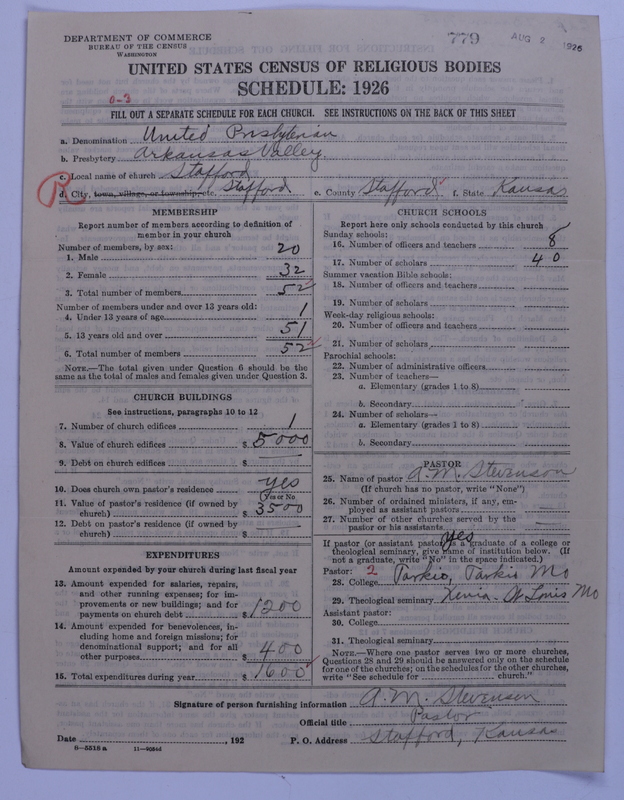 DEPARTMENT OF COMMERCE
BUREAU OF THE CENSUS
WASHINGTON
779
AUG 2 1926
UNITED STATES CENSUS OF RELIGIOUS BODIES
SCHEDULE: 1926
0-3
FILL OUT A SEPARATE SCHEDULE FOR EACH CHURCH. SEE INSTRUCTIONS ON THE BACK OF THIS SHEET
a. Denomination United Presbyterian
b. Presbytery Arkansas Valley
c. Local name of church Stafford
R
d. City, town, village, or township, etc. Stafford e. County Stafford f. State Kansas
MEMBERSHIP
Report number of members according to definition of
member in your church
Number of members, by sex:
1. Male 20
2. Female 32
3. Total number of members 52
Number of members under and over 13 years old:
4. Under 13 years of age 1
5. 13 years old and over 51
6. Total number of members 52
NOTE.—The total given under Question 6 should be
same as the total of males and females given under Question 3.
CHURCH BUILDINGS
See instructions, paragraphs 10 to 12
7. Number of church edifices 1
8. Value of church edifices $ 5000
9. Debt on church edifices $
10. Does church own pastor's residence yes
(Yes or No)
11. Value of pastor's residence (if owned by
church) $ 3500
12. Debt on pastor's residence (if owned by
church) $
EXPENDITURES
Amount expended by your church during last fiscal year
13. Amount expended for salaries, repairs,
and other running expenses; for im-
provements or new buildings; and for
payments on church debt $ 1200
14. Amount expended for benevolences, in-
cluding home and foreign missions; for
denominational support; and for all
other purposes $ 400
15. Total expenditures during year $ 1600
CHURCH SCHOOLS
Report here only schools conducted by this church
Sunday schools:
16. Number of officers and teachers 8
17. Number of scholars 40
Summer vacation Bible schools:
18. Number of officers and teachers
19. Number of scholars
Week-day religious schools:
20. Number of officers and teachers
21. Number of scholars
Parochial schools:
22. Number of administrative officers
23. Number of teachers—
a. Elementary (grades 1 to 8)
b. Secondary
24. Number of scholars—
a. Elementary (grades 1 to 8)
b. Secondary
PASTOR
25. Name of pastor A. M. Stevenson
(If church has no pastor, write "None")
26. Number of ordained ministers, if any, em-
ployed as assistant pastors
27. Number of other churches served by the
pastor or his assistants
yes
If pastor (or assistant pastor) is a graduate of a college or
theological seminary, give name of institution below. (If
not a graduate, write "No" in the space indicated.)
Pastor: 2
28. College Tarkio, Tarkio Mo
29. Theological seminary Xenia - St Louis Mo
Assistant pastor:
30. College
31. Theological seminary
NOTE.—Where one pastor serves two or more churches,
Questions 28 and 29 should be answered only on the schedule
for one of the churches; on the schedules for the other churches,
write "See schedule for church."
Signature of person furnishing information A. M. Stevenson
Official title Pastor
Date , 192 P. O. Address Stafford, Kansas
8—5518 a